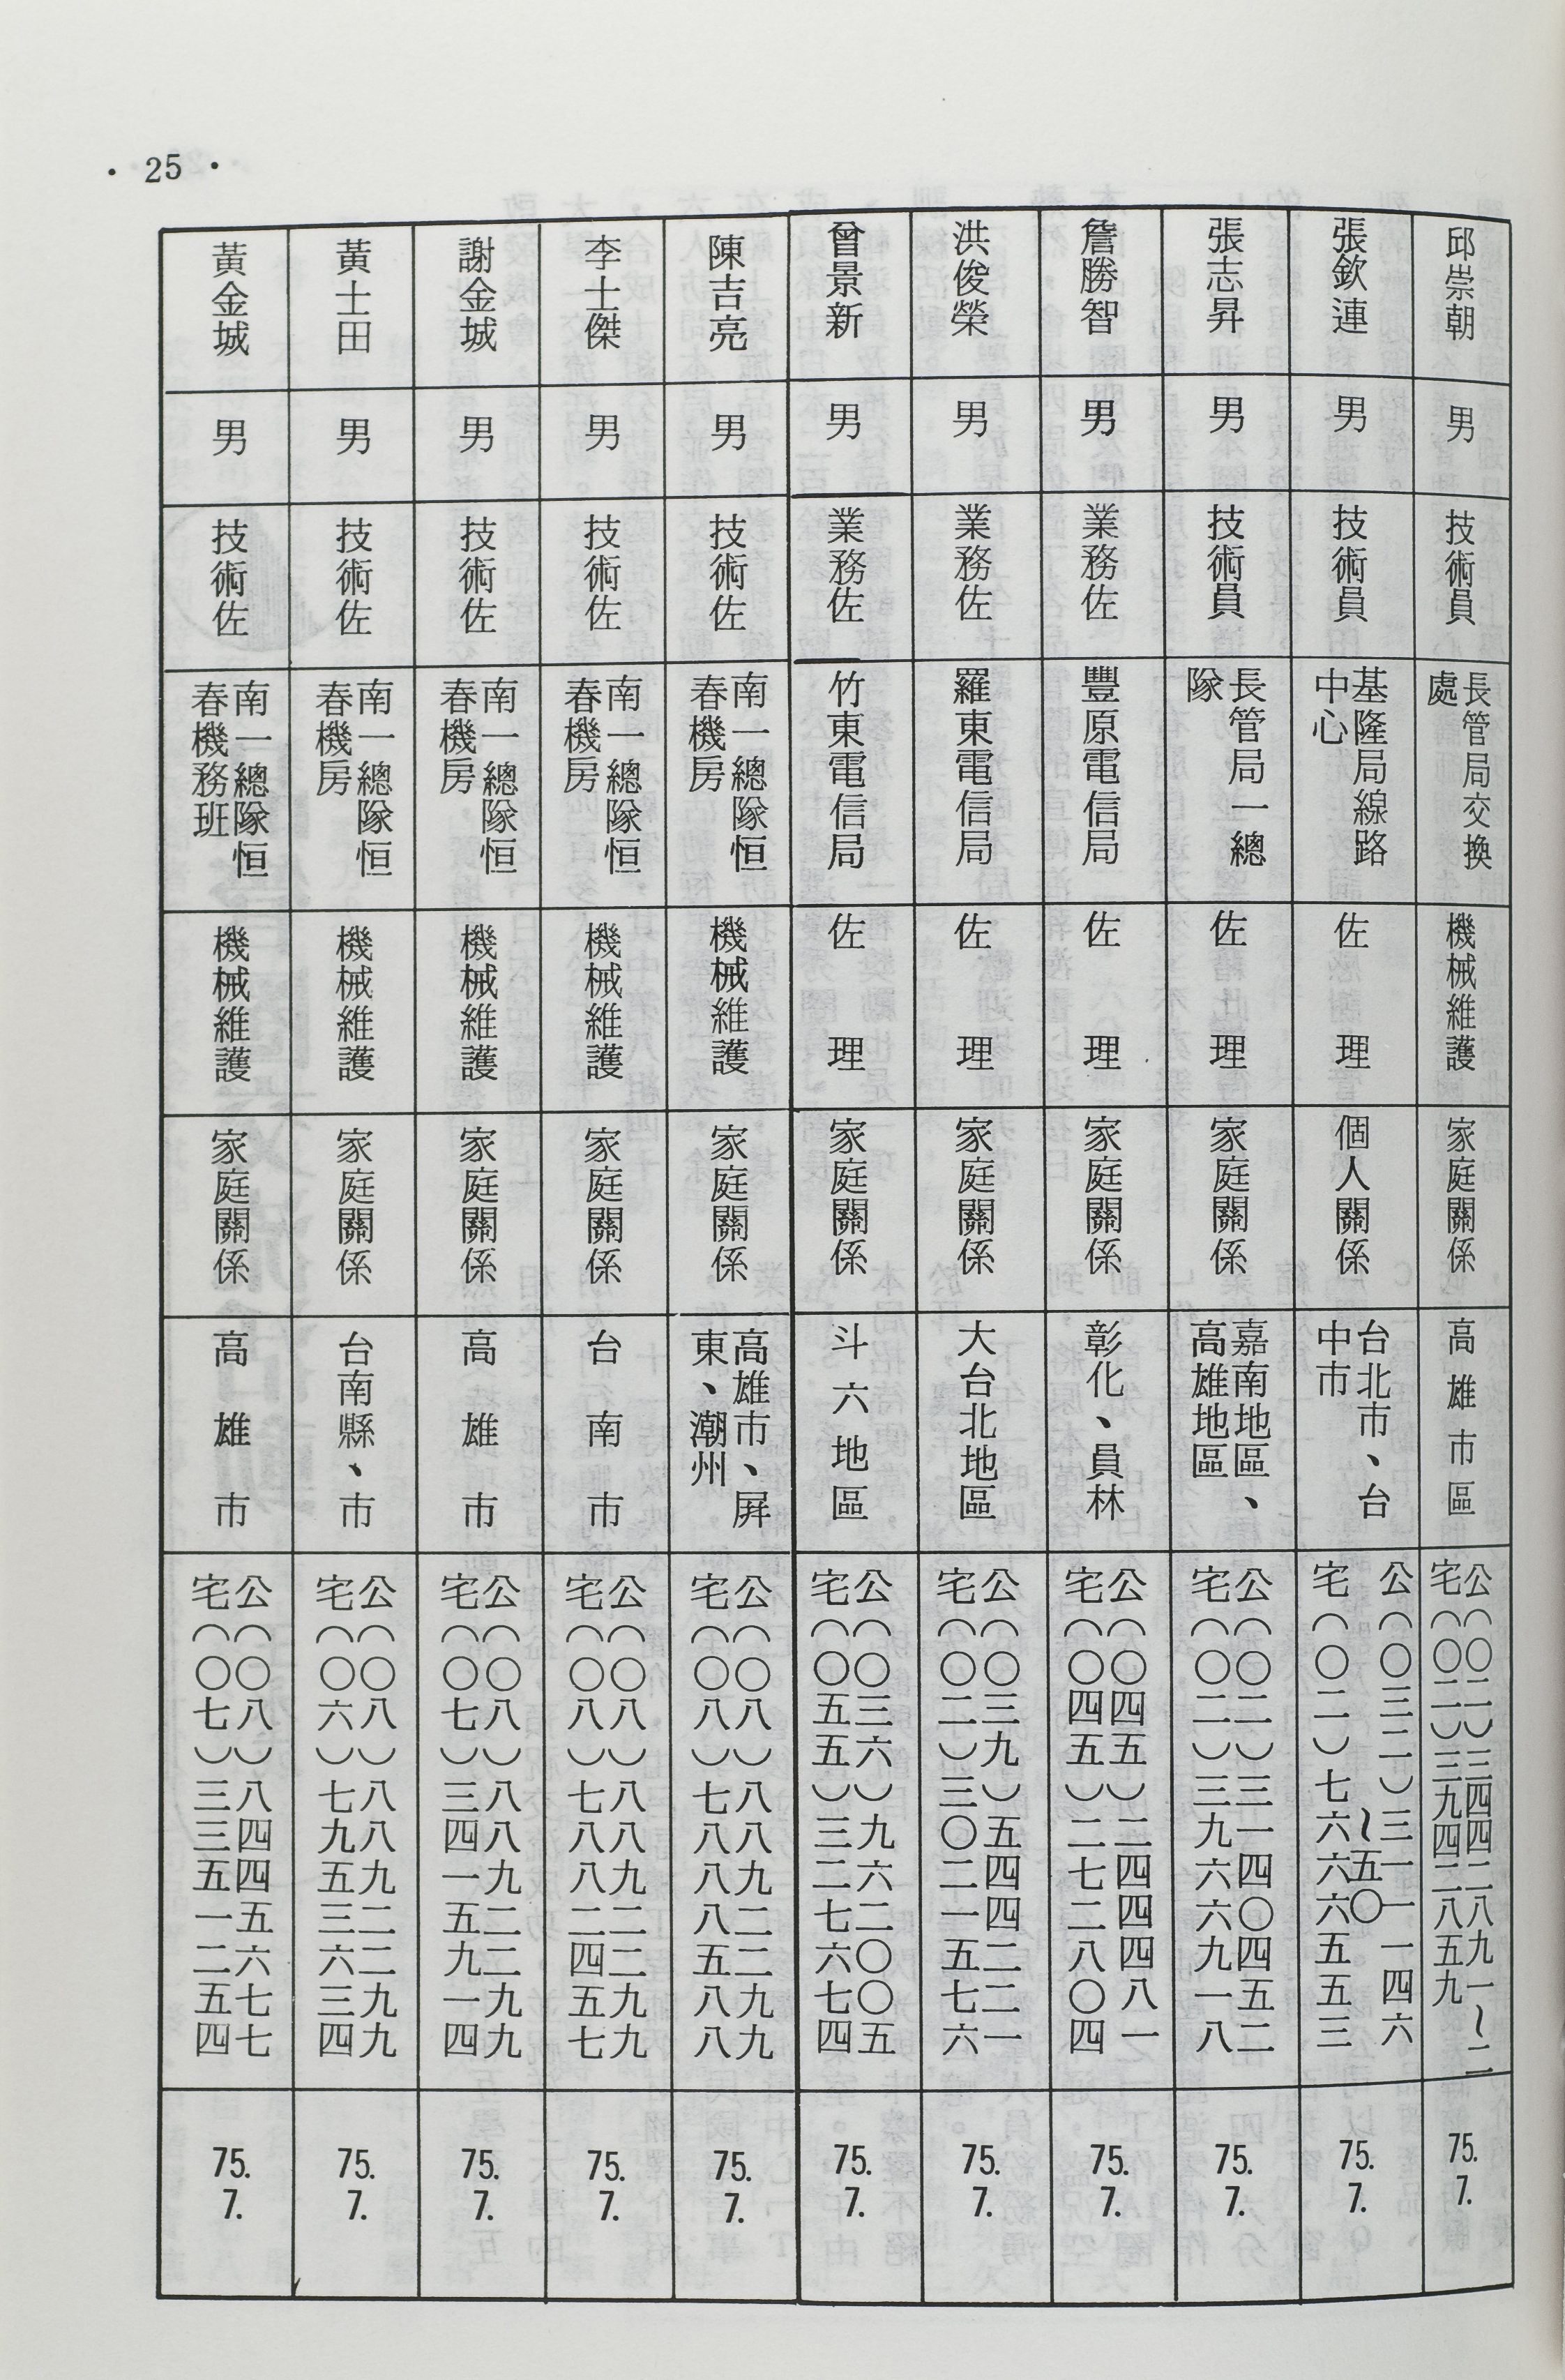 • 25 •
邱崇朝
男
技術員
長管局交換
處
機械維護
家庭關係
高雄市區
公(〇二)三四四二八九一~二
宅(〇二)三九四二八五九
75.
7.
張欽連
男
技術員
基隆局線路
中心
佐理
個人關係
台北市、台
中市
公(〇三二)三一一一四六
~五〇
宅(〇二)七六六六五五三
75.
7.
張志昇
男
技術員
長管局一總
隊
佐理
家庭關係
嘉南地區、
高雄地區
公(〇二)三一四〇四五二
宅(〇二)三九六六九一八
75.
7.
詹勝智
男
業務佐
豐原電信局
佐理
家庭關係
彰化、員林
公(〇四五)二四四四八一
宅(〇四五)二七二八〇四
75.
7.
洪俊榮
男
業務佐
羅東電信局
佐理
家庭關係
大台北地區
公(〇三九)五四四二二一
宅(〇二)三〇二一五七六
75.
7.
曾景新
男
業務佐
竹東電信局
佐理
家庭關係
斗六地區
公(〇三六)九六二〇〇五
宅(〇五五)三二七六七四
75.
7.
陳吉亮
男
技術佐
南一總隊恒
春機房
機械維護
家庭關係
高雄市、屏
東、潮州
公(〇八)八八九二二九九
宅(〇八)七八八八五八八
75.
7.
李士傑
男
技術佐
南一總隊恒
春機房
機械維護
家庭關係
台南市
公(〇八)八八九二二九九
宅(〇八)七八八二四五七
75.
7.
謝金城
男
技術佐
南一總隊恒
春機房
機械維護
家庭關係
高雄市
公(〇八)八八九二二九九
宅(〇七)三四一五九一四
75.
7.
黃士田
男
技術佐
南一總隊恒
春機房
機械維護
家庭關係
台南縣、市
公(〇八)八八九二二九九
宅(〇六)七九五三六三四
75.
7.
黃金城
男
技術佐
南一總隊恒
春機務班
機械維護
家庭關係
高雄市
公(〇八)八四四五六七七
宅(〇七)三三五一二五四
75.
7.